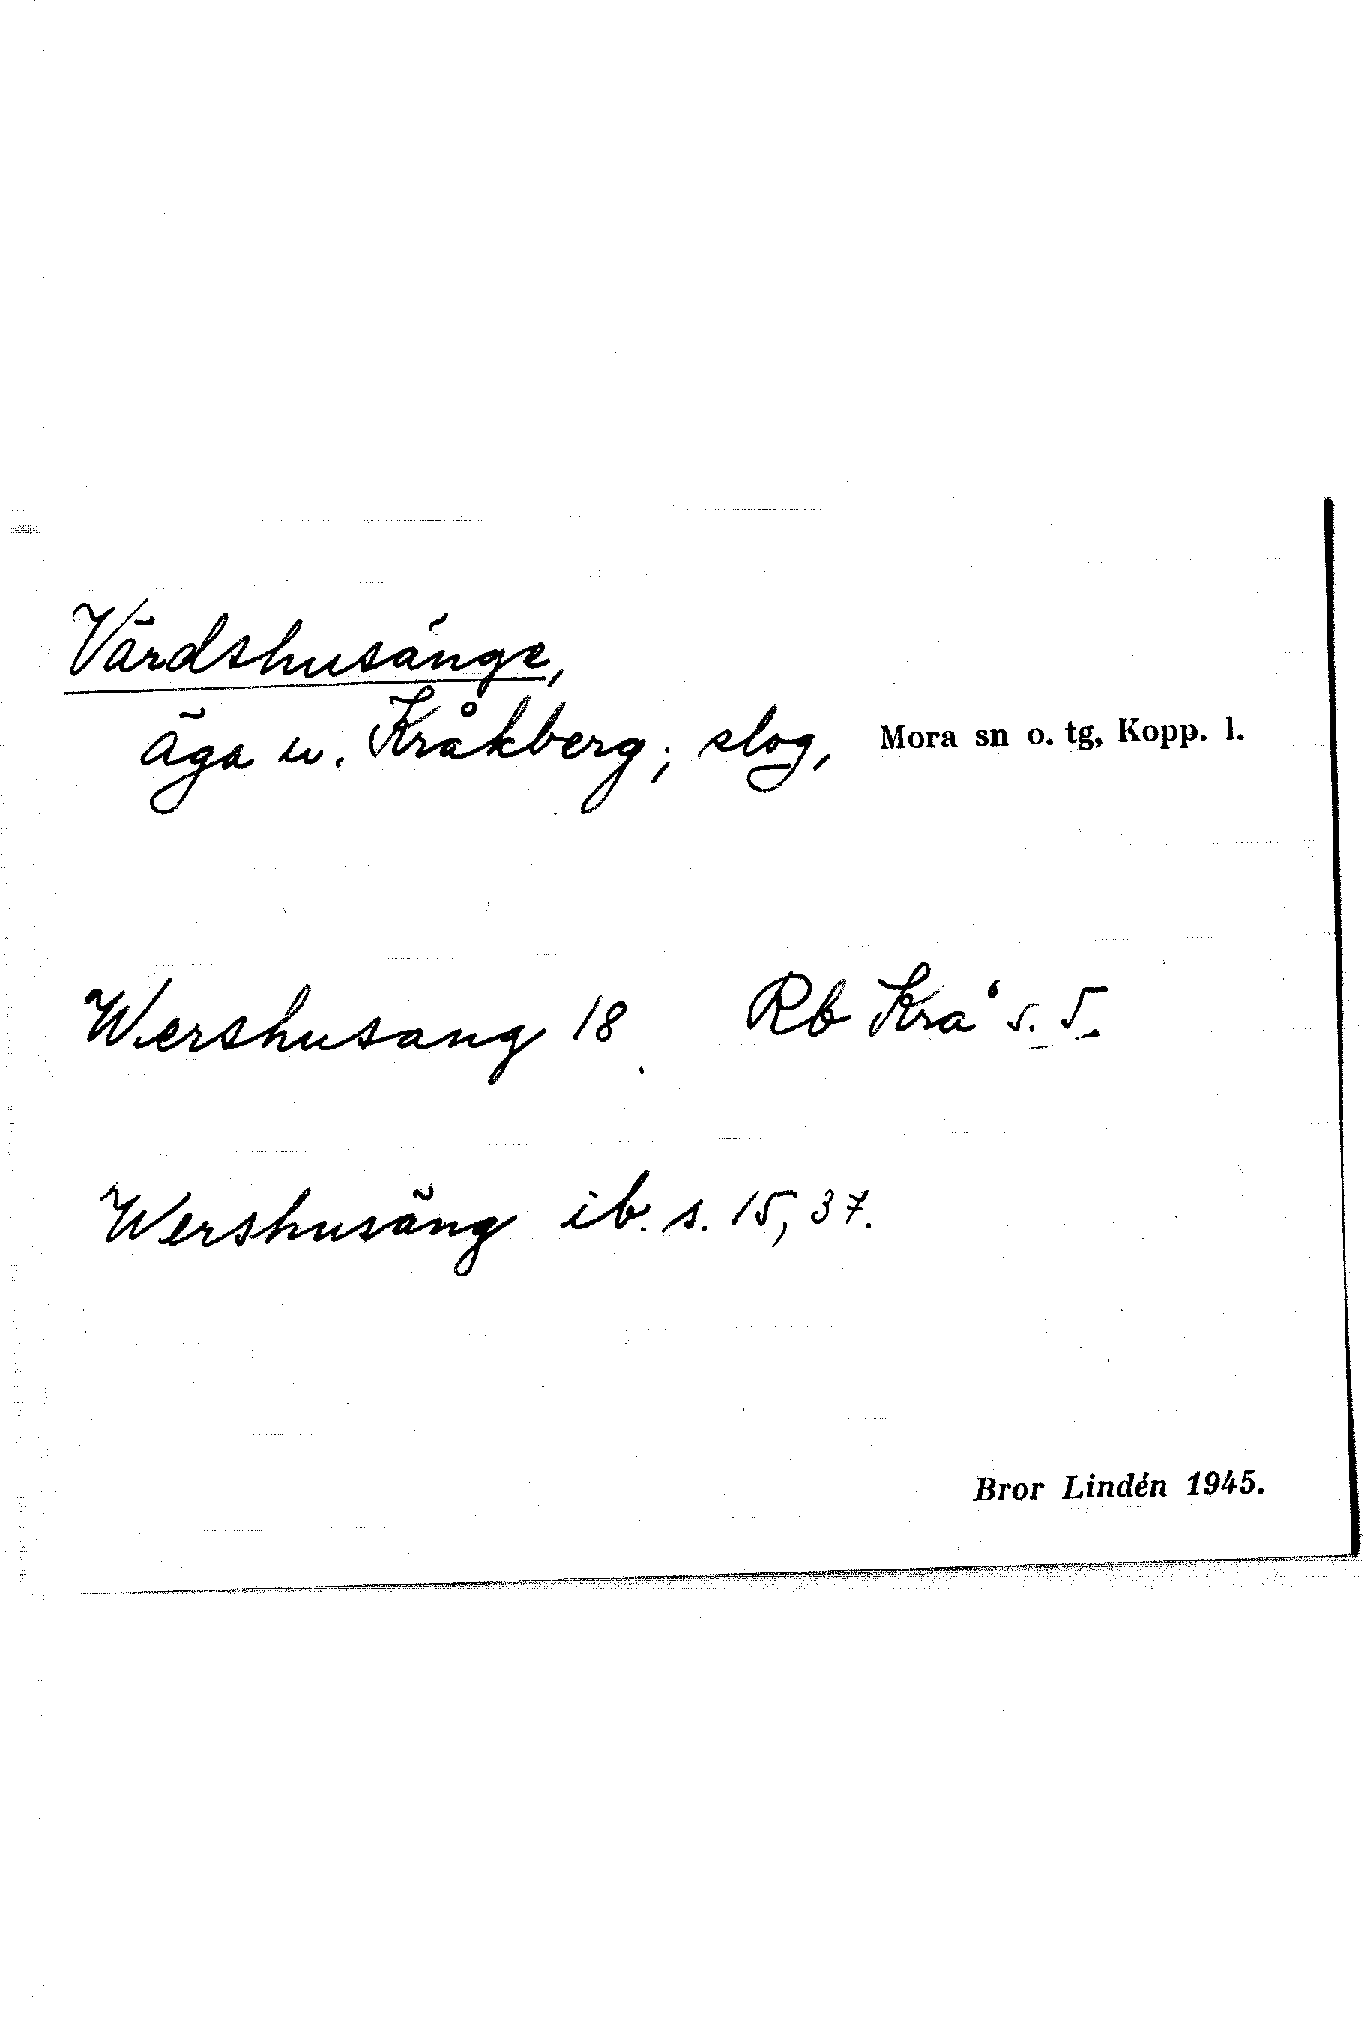 Värdshusänge,
äga u. Kråkberg; slog, Mora sn o. tg, Kopp. l.
Wershusang 18 Rb Krå s. 5.
Wershusäng ib. s. 15, 37.
Bror Lindén 1945.